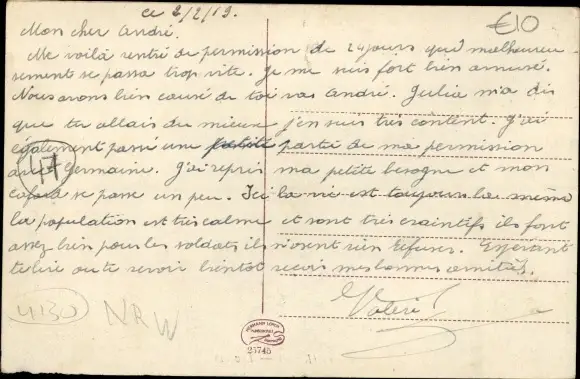 ce 2/2/19.
€10
Mon cher André.
Me voilà rentré de permission de 24 jours qui malheureu-
sement se passa trop vite. Je me suis fort bien amusé.
Nous avons bien causé de toi vas André. Julia m'a dis
que tu allais du mieux j'en suis très content. J'ai
également passé une partie de ma permission
avec Germaine. J'ai repris ma petite besogne et mon
cafard se passe un peu. Ici la vie est toujours la même
la population est très calme et sont très craintifs ils font
assez bien pour les soldats, ils n'osent rien refuser. Espérant
te lire ou te revoir bientôt reçois mes bonnes amitiés.
Valéri
47
4130
NRW
25745